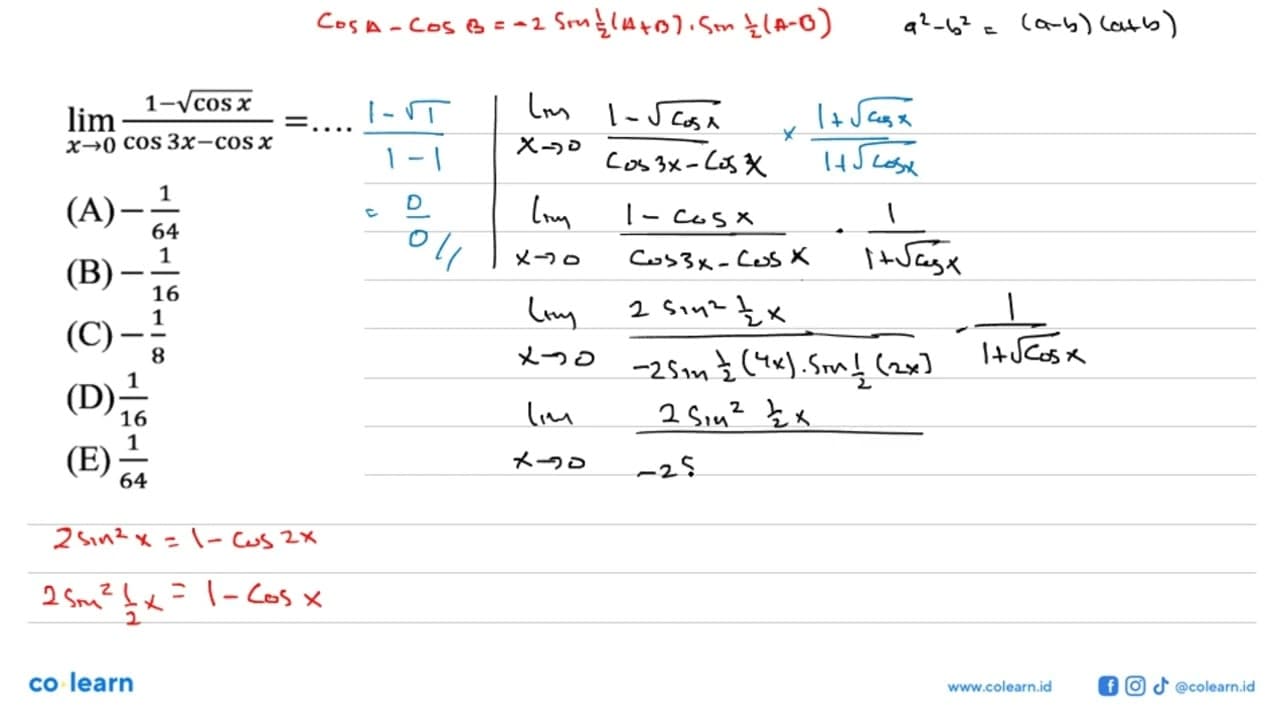 Cos A - Cos B = -2 Sin 1/2 (A+B) . Sin 1/2 (A-B)
a² - b² = (a-b) (a+b)
lim x→0 (1-√cos x)/(cos 3x-cos x) =....
(A) -1/64
(B) -1/16
(C) -1/8
(D) 1/16
(E) 1/64
(1-√1)/(1-1)
= 0/0 //
lim x→0 (1-√cos x)/(cos 3x - cos x) × (1+√cos x)/(1+√cos x)
lim x→0 (1-cos x)/(cos 3x - cos x) . 1/(1+√cos x)
lim x→0 (2 sin² 1/2 x)/(-2 sin 1/2 (4x) . sin 1/2 (2x)) . 1/(1+√cos x)
lim x→0 (2 sin² 1/2 x)/(-2 s
2 sin² x = 1 - cos 2x
2 sin² 1/2 x = 1 - cos x
co·learn
www.colearn.id
@colearn.id